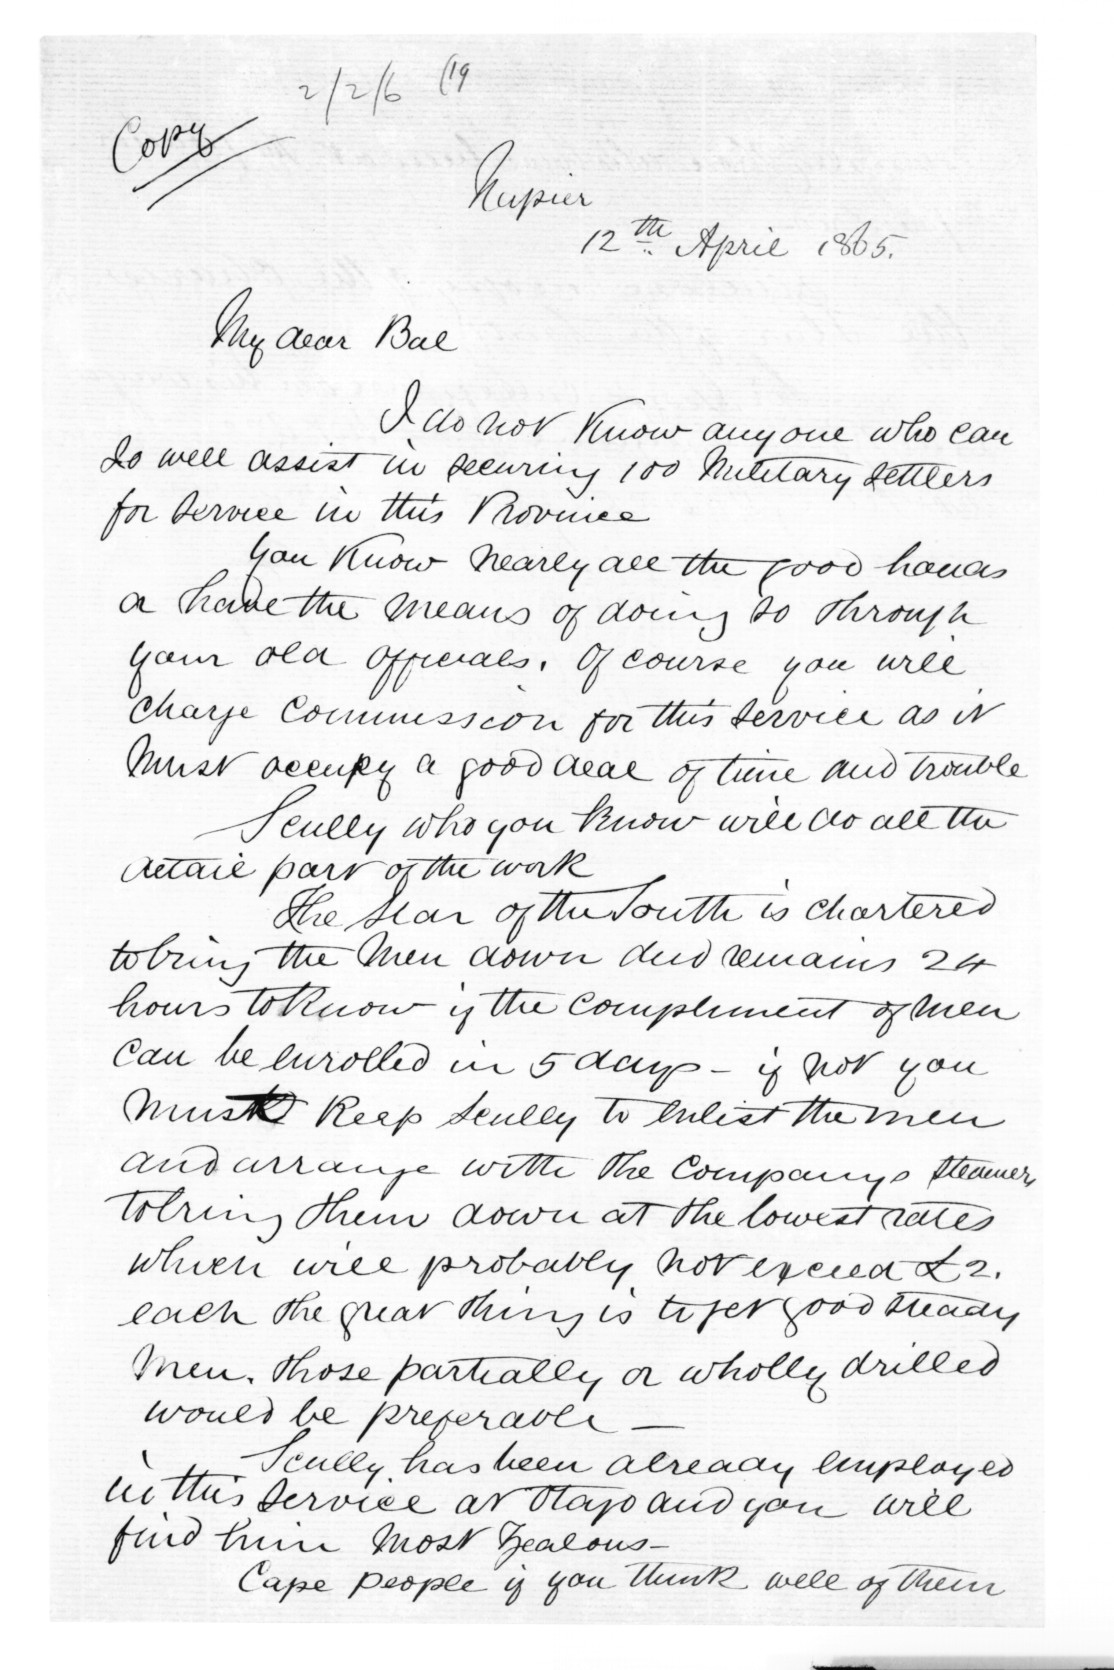 2/2/6 (19
Copy
Napier
12th April 1865.
My dear Bal
I do not Know anyone who can
So well assist in securing 100 Military Settlers
for Service in this Province
You Know nearly all the good hands
or have the means of doing so through
your old officials. Of course you will
charge Commission for this Service as it
Must occupy a good deal of time and trouble
Scully who you Know will do all the
detail part of the work
The Star of the South is chartered
to bring the Men down and remains 24
hours to Know if the compliment of Men
can be enrolled in 5 days - if not you
Must Keep Scully to enlist the men
and arrange with the Companys Steamers
to bring them down at the lowest rates
which will probably not exceed £2.
each the great thing is to get good steady
Men. Those partially or wholly drilled
would be preferable —
Scully has been already employed
in this Service at Otago and you will
find him Most Zealous -
Cape People if you think well of them